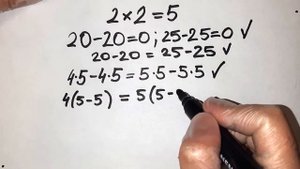 2×2=5
20-20=0; 25-25=0 ✓
20-20 = 25-25 ✓
4·5-4·5 = 5·5-5·5 ✓
4(5-5) = 5(5-